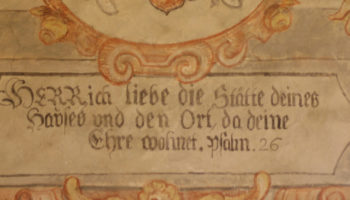 HERR ich liebe die Stätte deines
Hauses vnd den Ort, da deine
Ehre wohnet. Psalm. 26